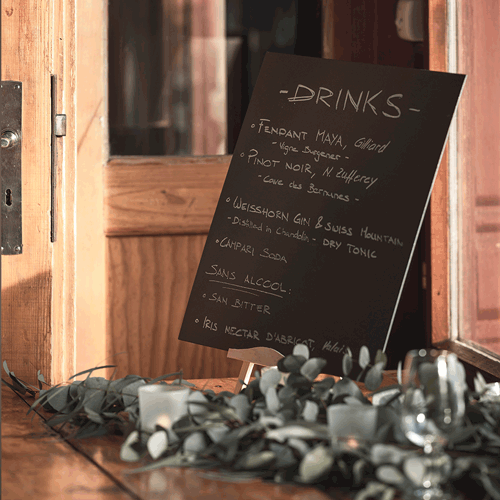 -DRINKS-
• FENDANT MAYA, Gilliard
- Vigne Burgener -
• PINOT NOIR, N. Zufferey
- Cave des Bernunes -
• WEISSHORN GIN & SWISS MOUNTAIN
- Distilled in Chandolin - DRY TONIC
• CAMPARI SODA
SANS ALCOOL:
• SAN BITTER
• IRIS NECTAR D'ABRICOT,